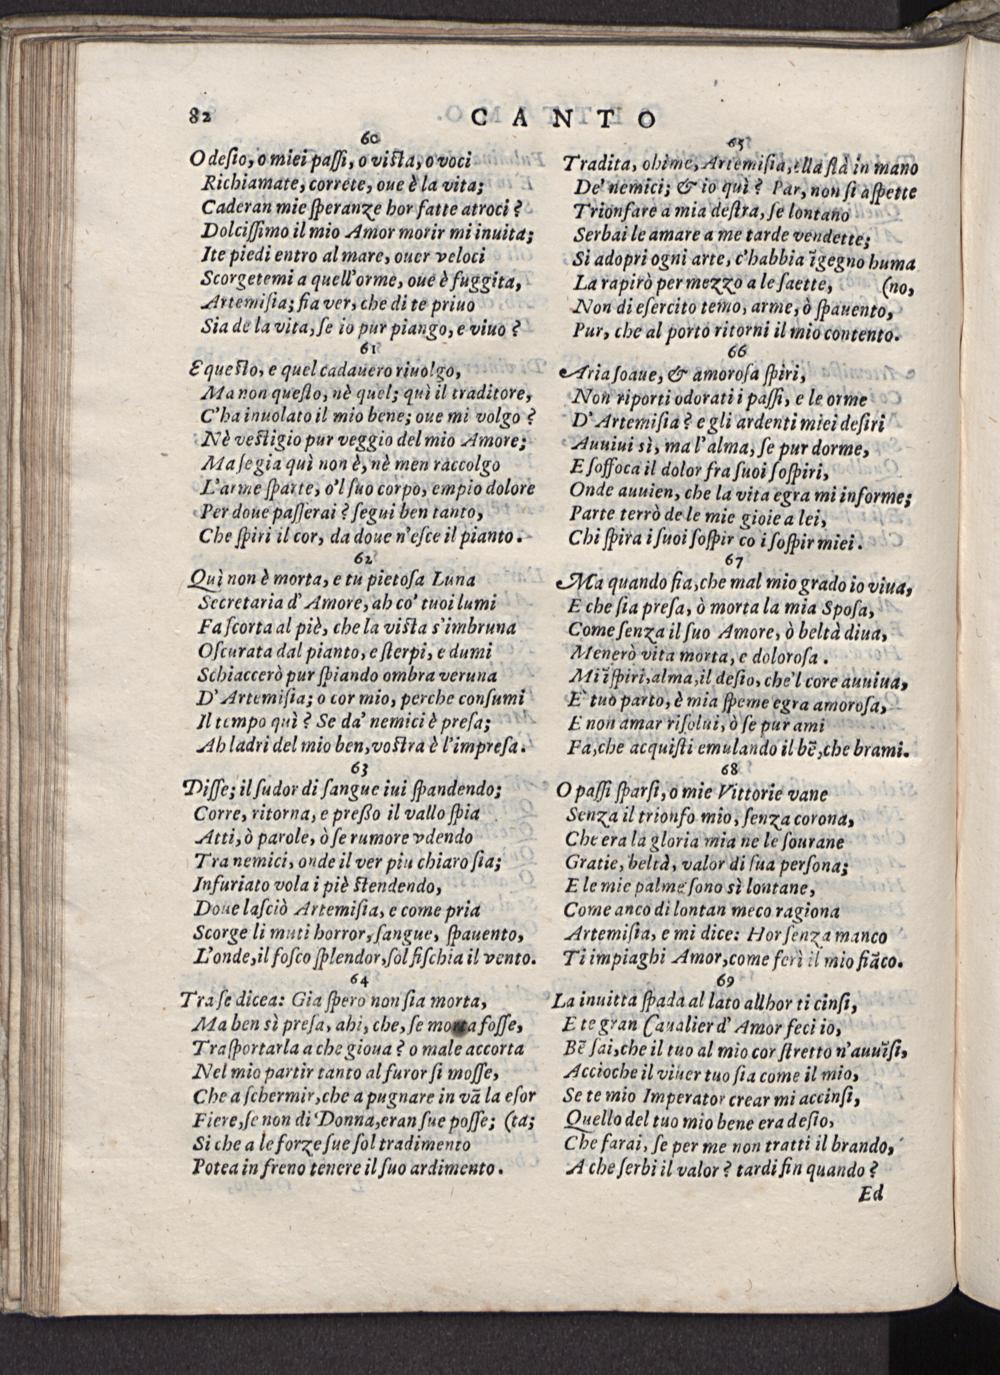 82
CANTO
60
O desio, o miei passi, o vista, o voci
Richiamate, correte, oue è la vita;
Caderan mie speranze hor fatte atroci?
Dolcissimo il mio Amor morir mi inuita;
Ite piedi entro al mare, ouer veloci
Scorgetemi a quell'orme, oue è fuggita,
Artemisia; fia ver, che di te priuo
Sia de la vita, se io pur piango, e viuo?
61
E questo, e quel cadauero riuolgo,
Ma non questo, nè quel; quì il traditore,
C'ha inuolato il mio bene; oue mi volgo?
Nè vestigio pur veggio del mio Amore;
Ma se gia quì non è, nè men raccolgo
L'arme sparte, o'l suo corpo, empio dolore
Per doue passerai? segui ben tanto,
Che spiri il cor, da doue n'esce il pianto.
62
Quì non è morta, e tu pietosa Luna
Secretaria d'Amore, ah co' tuoi lumi
Fa scorta al piè, che la vista s'imbruna
Oscurata dal pianto, e sterpi, e dumi
Schiaccerò pur spiando ombra veruna
D'Artemisia; o cor mio, perche consumi
Il tempo quì? Se da' nemici è presa;
Ah ladri del mio ben, vostra è l'impresa.
63
Disse; il sudor di sangue iui spandendo;
Corre, ritorna, e presso il vallo spia
Atti, ò parole, ò se rumore vdendo
Tra nemici, onde il ver piu chiaro sia;
Infuriato vola i piè stendendo,
Doue lasciò Artemisia, e come pria
Scorge li muti horror, sangue, spauento,
L'onde, il fosco splendor, sol fischia il vento.
64
Tra se dicea: Gia spero non sia morta,
Ma ben sì presa, ahi, che, se morta fosse,
Trasportarla a che gioua? o male accorta
Nel mio partir tanto al furor si mosse,
Che a schermir, che a pugnare in vā la esor
Fiere, se non di Donna, eran sue posse; (ta;
Si che a le forze sue sol tradimento
Potea in freno tenere il suo ardimento.
65
Tradita, ohime, Artemisia, ella stà in mano
De' nemici; & io quì? Par, non si aspette
Trionfare a mia destra, se lontano
Serbai le amare a me tarde vendette;
Si adopri ogni arte, c'habbia ĩgegno huma
La rapirò per mezzo a le saette, (no,
Non di esercito temo, arme, ò spauento,
Pur, che al porto ritorni il mio contento.
66
Aria soaue, & amorosa spiri,
Non riporti odorati i passi, e le orme
D'Artemisia? e gli ardenti miei desiri
Auuiui sì, ma l'alma, se pur dorme,
E soffoca il dolor fra suoi sospiri,
Onde auuien, che la vita egra mi informe;
Parte terrò de le mie gioie a lei,
Chi spira i suoi sospir co i sospir miei.
67
Ma quando fia, che mal mio grado io viua,
E che sia presa, ò morta la mia Sposa,
Come senza il suo Amore, ò beltà diua,
Menerò vita morta, e dolorosa.
Mi ĩspiri, alma, il desio, che'l core auuiua,
E' tuo parto, è mia speme egra amorosa,
E non amar risolui, ò se pur ami
Fa, che acquisti emulando il bē, che brami.
68
O passi sparsi, o mie Vittorie vane
Senza il trionfo mio, senza corona,
Che era la gloria mia ne le sourane
Gratie, beltà, valor di sua persona;
E le mie palme sono sì lontane,
Come anco di lontan meco ragiona
Artemisia, e mi dice: Hor senza manco
Ti impiaghi Amor, come ferì il mio fiāco.
69
La inuitta spada al lato allhor ti cinsi,
E te gran Caualier d'Amor feci io,
Bē sai, che il tuo al mio cor stretto n'auuĩsi,
Accioche il viuer tuo sia come il mio,
Se te mio Imperator crear mi accinsi,
Quello del tuo mio bene era desio,
Che farai, se per me non tratti il brando,
A che serbi il valor? tardi fin quando?
Ed